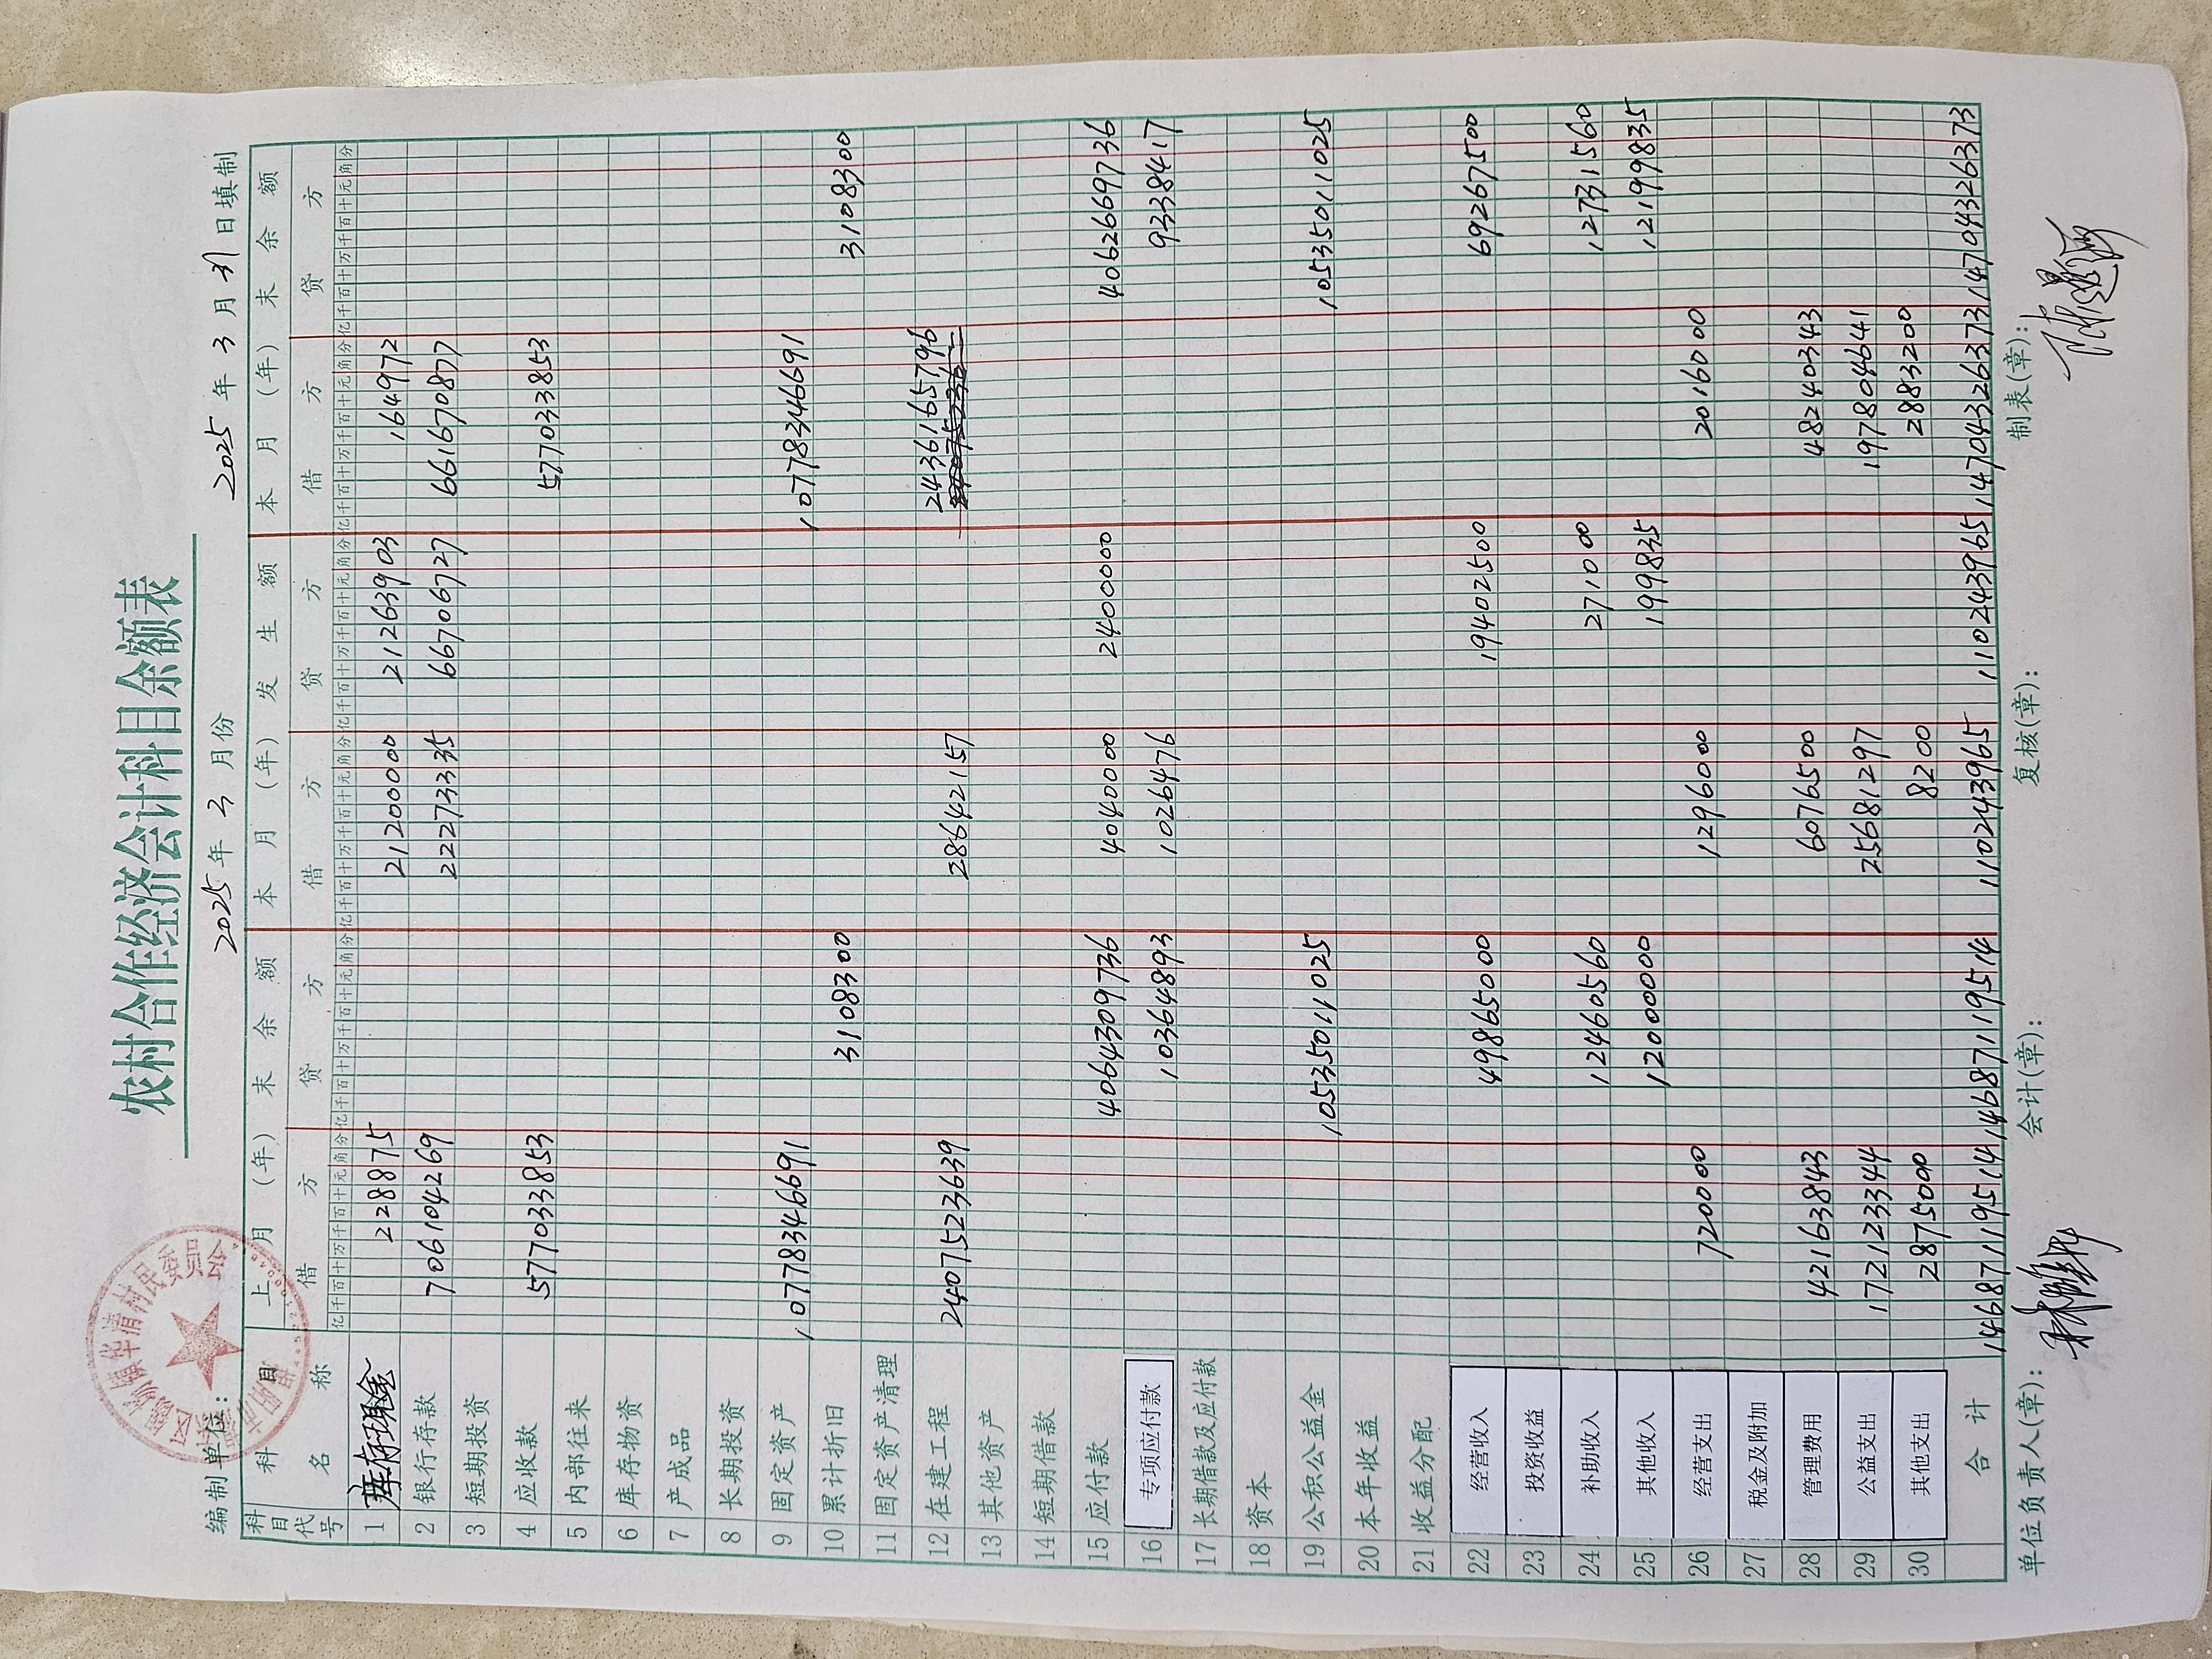 农村合作经济会计科目余额表
编制单位: 2025年 3 月份 2025 年 3 月 31 日填制
科目代号 科目名称 上月(年)末余额 本月(年)发生额 本月(年)末余额
借方 贷方 借方 贷方 借方 贷方
亿千百十万千百十元角分 亿千百十万千百十元角分 亿千百十万千百十元角分 亿千百十万千百十元角分 亿千百十万千百十元角分 亿千百十万千百十元角分
1 库存现金 228875 21200000 21263903 164972
2 银行存款 706104269 22273335 66706727 661670877
3 短期投资
4 应收款 577033853 577033853
5 内部往来
6 库存物资
7 产成品
8 长期投资
9 固定资产 10778346691 10778346691
10 累计折旧 3108300 3108300
11 固定资产清理
12 在建工程 2407523639 28642157 2436165796
13 其他资产
14 短期借款
15 应付款 4064309736 4040000 2400000 4062669736
16 专项应付款 10364893 1026476 9338417
17 长期借款及应付款
18 资本
19 公积公益金 10535011025 10535011025
20 本年收益
21 收益分配
22 经营收入 49865000 19402500 69267500
23 投资收益
24 补助收入 12460560 271000 12731560
25 其他收入 12000000 199835 12199835
26 经营支出 720000 1296000 2016000
27 税金及附加
28 管理费用 42163843 6076500 48240343
29 公益支出 172123344 25681297 197804641
30 其他支出 2875000 8200 2883200
合计 14687119514 14687119514 110243965 110243965 14704326373 14704326373
单位负责人(章): 会计(章): 复核(章): 制表(章):